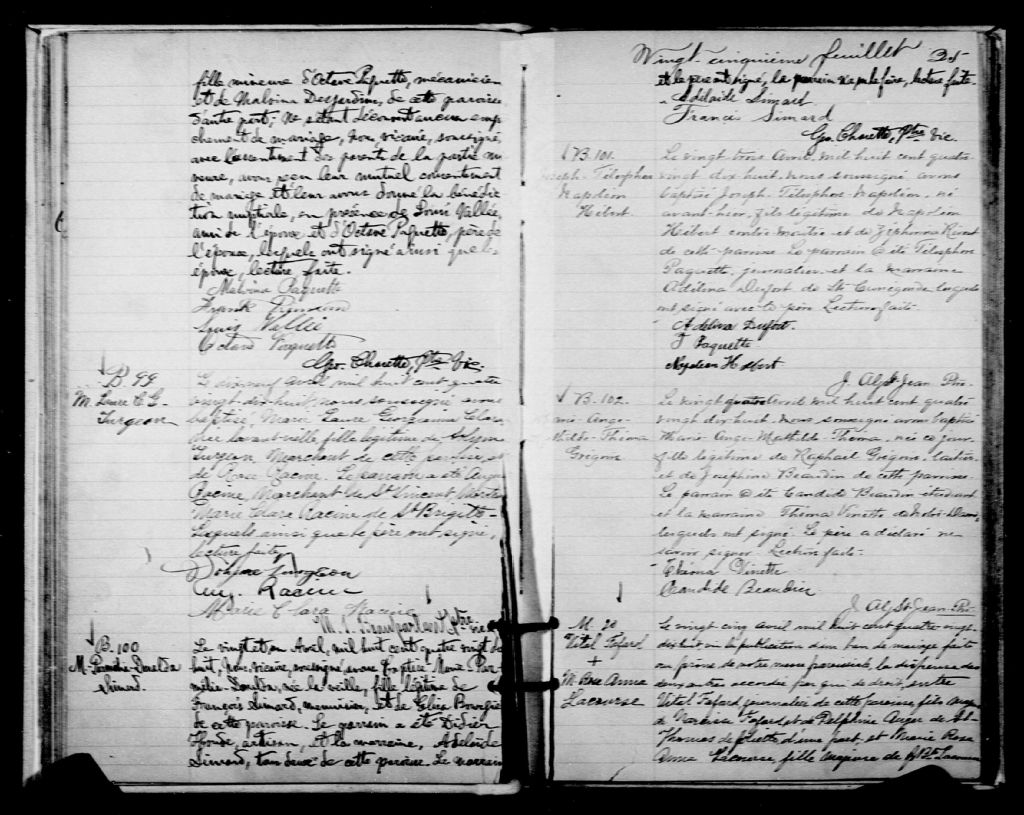 fille mineure d'Octave Paquette, mécanicien
et de Malvina Desjardins, de cette paroisse
d'autre part; ne s'étant découvert aucun empê-
chement de mariage, nous, vicaire, soussigné,
avec l'assentiment des parents de la partie mi-
neure, avons reçu leur mutuel consentement
de mariage et leur avons donné la bénédic-
tion nuptiale, en présence de Louis Vallée,
ami de l'époux et d'Octave Paquette, père de
l'épouse, lesquels ont signé ainsi que les
époux, lecture faite.
Malvina Paquette
Frank
Louis Vallée
Octave Paquette
Geo. Charette, Ptre Vic.
B. 99
M. Laure C. G.
Turgeon
Le dix-neuf avril mil huit cent quatre
vingt-dix-huit, nous, soussigné avons
baptisé, Marie Laure Clara
née l'avant-veille, fille légitime de
Turgeon Marchant de cette paroisse, et
de Rose Racine. Le parrain a été Aug.
Racine Marchant de St Vincent,
Marie Clara Racine de St Brigitte
Lesquels ainsi que le père ont signé,
lecture faite
Turgeon
Aug. Racine
Marie Clara Racine
ptre vic
B. 100
M. Donalda
Simard.
Le vingt et un Avril, mil huit cent quatre vingt dix
huit, nous, vicaire, soussigné avons baptisé Marie
Donalda, née la veille, fille légitime de
François Simard, menuisier, et de Bourgie
de cette paroisse. Le parrain a été
artisan, et la marraine, Adélaïde
Simard, tous deux de cette paroisse. Le parrain
Vingt-cinquième feuillet 35
et le père ont signé, le parrain n'a pu le faire, lecture faite
Adélaide Simard
Francis Simard
Geo. Charette, Ptre Vic.
B. 101.
Joseph-Télesphore
Napoléon
Hébert.
Le vingt trois Avril mil huit cent quatre
vingt dix huit, nous soussigné avons
baptisé Joseph Télesphore Napoléon, né
avant-hier, fils légitime de Napoléon
Hébert contre-maître et de Zéphirina
de cette paroisse. Le parrain a été Télesphore
Paquette, journalier et la marraine
Adelina Dufort de Ste Cunégonde lesquels
ont signé avec le père. Lecture faite.
Adelina Dufort.
T Paquette
Napoléon Hébert
J. Alp. St-Jean Ptre.
B. 102.
Marie-Ange-
Mathilde-Théma
Grégoire
Le vingt quatre Avril mil huit cent quatre
vingt dix huit. Nous soussigné avons baptisé
Marie-Ange-Mathilde-Théma, née ce jour,
fille légitime de Raphaël Grégoire, laitier
et de Joséphine Beaudin de cette paroisse.
Le parrain a été Candide Beaudin étudiant
et la marraine Théma Vinette de Notre-Dame
lesquels ont signé. Le père a déclaré ne
savoir signer. Lecture faite.
Théma Vinette
Candide Beaudin
J. Alp. St-Jean Ptre
M. 20
Vital Fafard
+
M. Rose Anna
Lacourse
Le vingt cinq avril mil huit cent quatre vingt
dix huit vu la publication d'un ban de mariage faite
au prône de notre messe paroissiale, la dispense des
deux autres accordée par qui de droit, entre
Vital Fafard journalier de cette paroisse, fils majeur
de Narcisse Fafard et de Delphine de St
Thomas de Joliette d'une part, et Marie Rose
Anna Lacourse, fille majeure de J Bte Lacourse